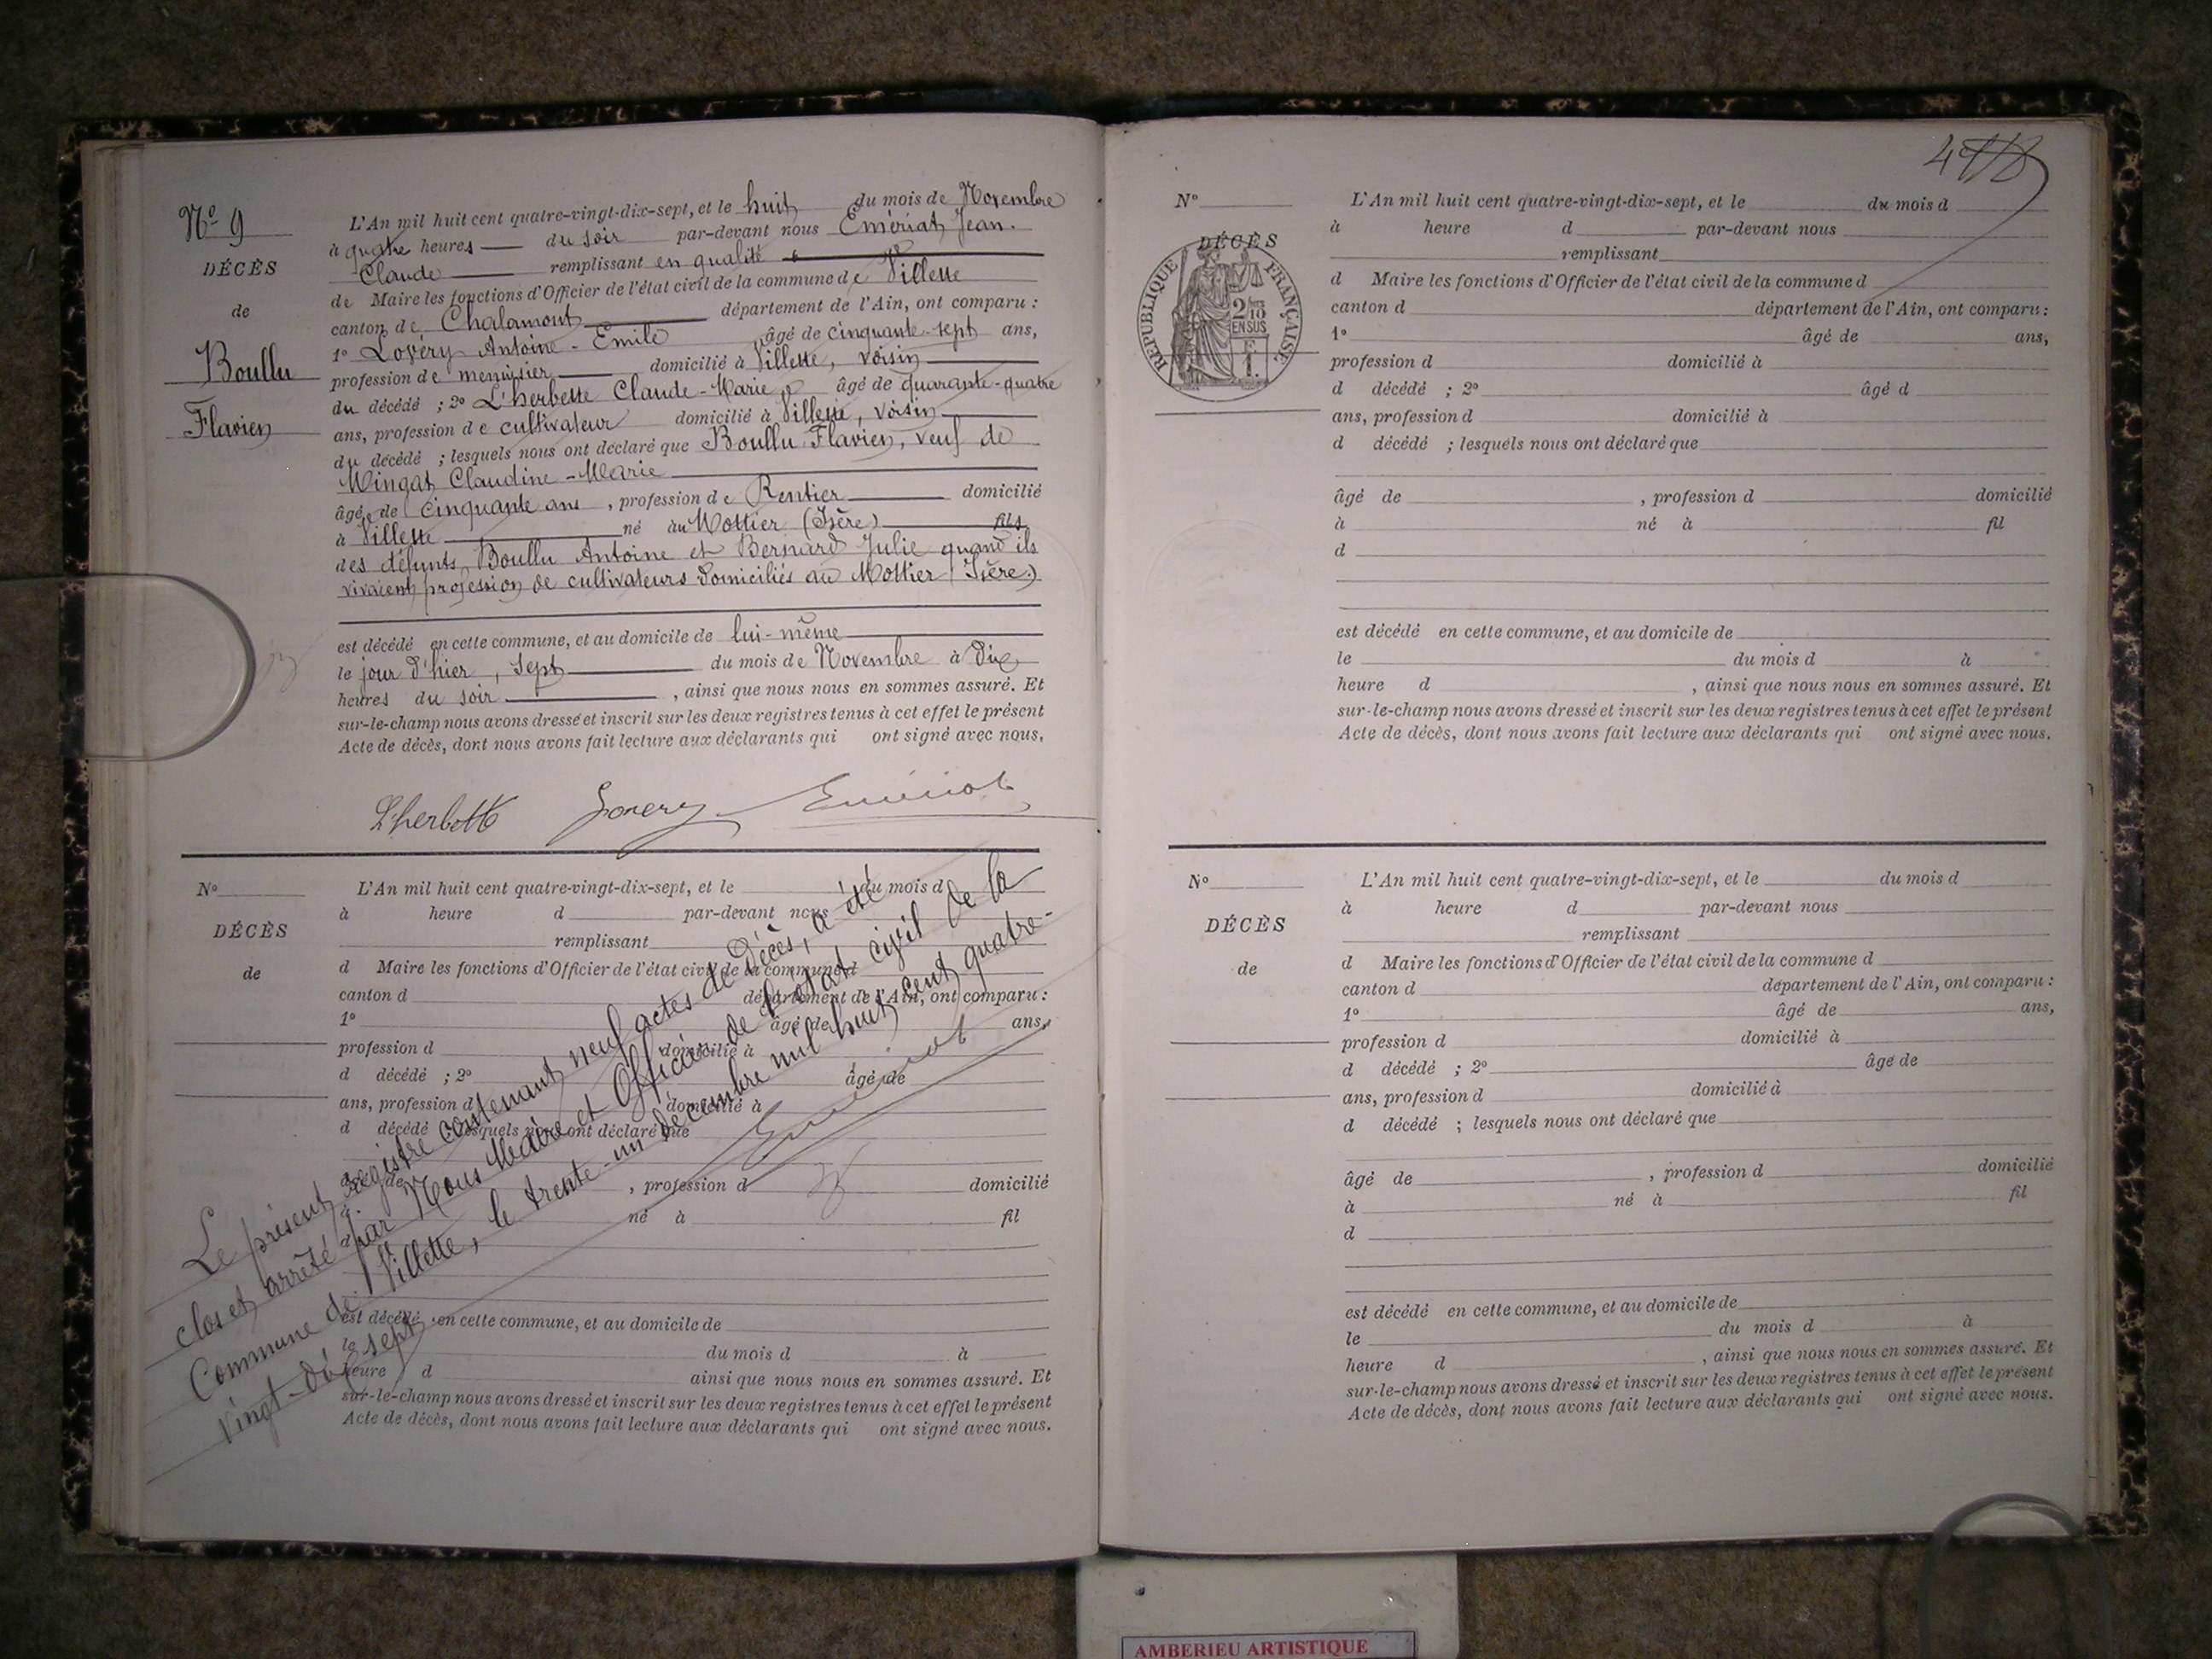 Nº 9
DÉCÈS
de
Boullu
Flavien
L'An mil huit cent quatre-vingt-dix-sept, et le huit du mois de Novembre
à quatre heures du soir par-devant nous Emériat Jean.
Claude remplissant en qualité
de Maire les fonctions d'Officier de l'état civil de la commune de Villette
canton de Chalamont département de l'Ain, ont comparu :
1º Lovéry Antoine-Emile âgé de cinquante-sept ans,
profession de menuisier domicilié à Villette, voisin
du décédé ; 2º L'herbette Claude-Marie âgé de quarante-quatre
ans, profession de cultivateur domicilié à Villette, voisin
du décédé ; lesquels nous ont déclaré que Boullu Flavien, veuf de
Mingat Claudine-Marie
âgé de cinquante ans, profession de Rentier domicilié
à Villette né au Mottier (Isère) fils
des défunts Boullu Antoine et Bernard Julie quand ils
vivaient profession de cultivateurs domiciliés au Mottier (Isère)
est décédé en cette commune, et au domicile de lui-même
le jour d'hier, sept du mois de Novembre à dix
heures du soir, ainsi que nous nous en sommes assuré. Et
sur-le-champ nous avons dressé et inscrit sur les deux registres tenus à cet effet le présent
Acte de décès, dont nous avons fait lecture aux déclarants qui ont signé avec nous.
Lherbette Lovery Emériat
Nº
DÉCÈS
de
L'An mil huit cent quatre-vingt-dix-sept, et le du mois d
à heure d par-devant nous
remplissant
d Maire les fonctions d'Officier de l'état civil de la commune d
canton d département de l'Ain, ont comparu :
1º âgé de ans,
profession d domicilié à
d décédé ; 2º âgé de
ans, profession d domicilié à
d décédé ; lesquels nous ont déclaré que
âgé de , profession d domicilié
à né à fil
d
est décédé en cette commune, et au domicile de
le du mois d à
heure d ainsi que nous nous en sommes assuré. Et
sur-le-champ nous avons dressé et inscrit sur les deux registres tenus à cet effet le présent
Acte de décès, dont nous avons fait lecture aux déclarants qui ont signé avec nous.
Le présent registre contenant neuf actes de Décès, a été
clos et arrêté par Nous Maire et Officier de l'état civil de la
Commune de Villette, le trente-un décembre mil huit cent quatre-
vingt-dix-sept
Emériat
Nº
DÉCÈS
RÉPUBLIQUE FRANÇAISE
2/10
EN SUS
L'An mil huit cent quatre-vingt-dix-sept, et le du mois d
à heure d par-devant nous
remplissant
d Maire les fonctions d'Officier de l'état civil de la commune d
canton d département de l'Ain, ont comparu :
1º âgé de ans,
profession d domicilié à
d décédé ; 2º âgé d
ans, profession d domicilié à
d décédé ; lesquels nous ont déclaré que
âgé de , profession d domicilié
à né à fil
d
est décédé en cette commune, et au domicile de
le du mois d à
heure d , ainsi que nous nous en sommes assuré. Et
sur-le-champ nous avons dressé et inscrit sur les deux registres tenus à cet effet le présent
Acte de décès, dont nous avons fait lecture aux déclarants qui ont signé avec nous.
Nº
DÉCÈS
de
L'An mil huit cent quatre-vingt-dix-sept, et le du mois d
à heure d par-devant nous
remplissant
d Maire les fonctions d'Officier de l'état civil de la commune d
canton d département de l'Ain, ont comparu :
1º âgé de ans,
profession d domicilié à
d décédé ; 2º âge de
ans, profession d domicilié à
d décédé ; lesquels nous ont déclaré que
âgé de , profession d domicilié
à né à fil
d
est décédé en cette commune, et au domicile de
le du mois d à
heure d , ainsi que nous nous en sommes assuré. Et
sur-le-champ nous avons dressé et inscrit sur les deux registres tenus à cet effet le présent
Acte de décès, dont nous avons fait lecture aux déclarants qui ont signé avec nous.
AMBERIEU ARTISTIQUE